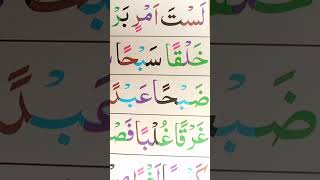 لَسْتَ اَمْرٍ بَرْ
خَلْقًا سَبْحًا
ضَبْحًا عَبْدًا
غَرْقًا غُلْبًا فَصْ